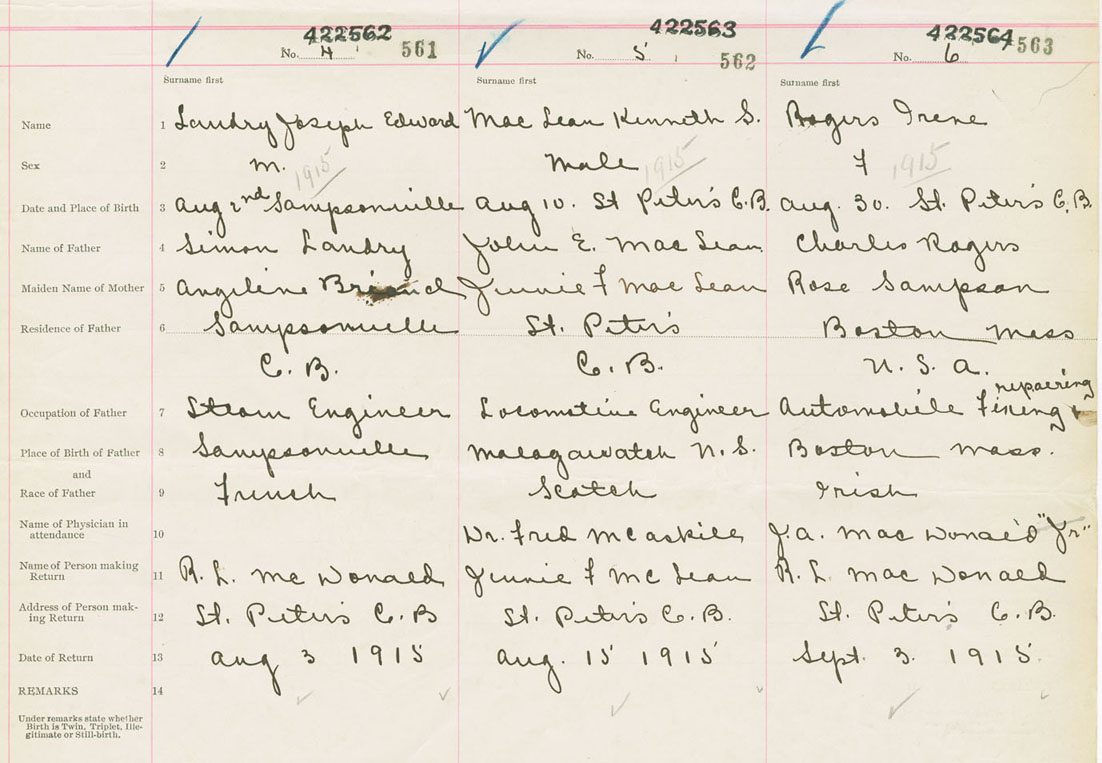 422562 422563 422564
No. 4 561 No. 5 562 No. 6 563
Surname first Surname first Surname first
Name 1 Landry Joseph Edward Mac Lean Kenneth S. Rogers Irene
Sex 2 m. 1915 Male 1915 F 1915
Date and Place of Birth 3 Aug 2nd Sampsonville Aug 10. St Peter's C.B. Aug. 30. St. Peter's C.B.
Name of Father 4 Simon Landry John E. Mac Lean Charles Rogers
Maiden Name of Mother 5 Angeline Briand Jennie F Mac Lean Rose Sampson
Residence of Father 6 Sampsonville St. Peter's Boston Mass
C. B. C. B. U. S. A.
repairing
Occupation of Father 7 Steam Engineer Locomotive Engineer Automobile Fixing &
Place of Birth of Father 8 Sampsonville Malagawatch N. S. Boston Mass.
and
Race of Father 9 French Scotch Irish
Name of Physician in
attendance 10 Dr. Fred McAskill J. A. Mac Donald "Jr"
Name of Person making
Return 11 R. L. Mc Donald Jennie F Mc Lean R. L. Mac Donald
Address of Person mak-
ing Return 12 St. Peter's C. B St. Peter's C. B. St. Peter's C. B.
Date of Return 13 Aug 3 1915 Aug. 15 1915 Sept. 3. 1915.
REMARKS 14
Under remarks state whether
Birth is Twin, Triplet, Ille-
gitimate or Still-birth.